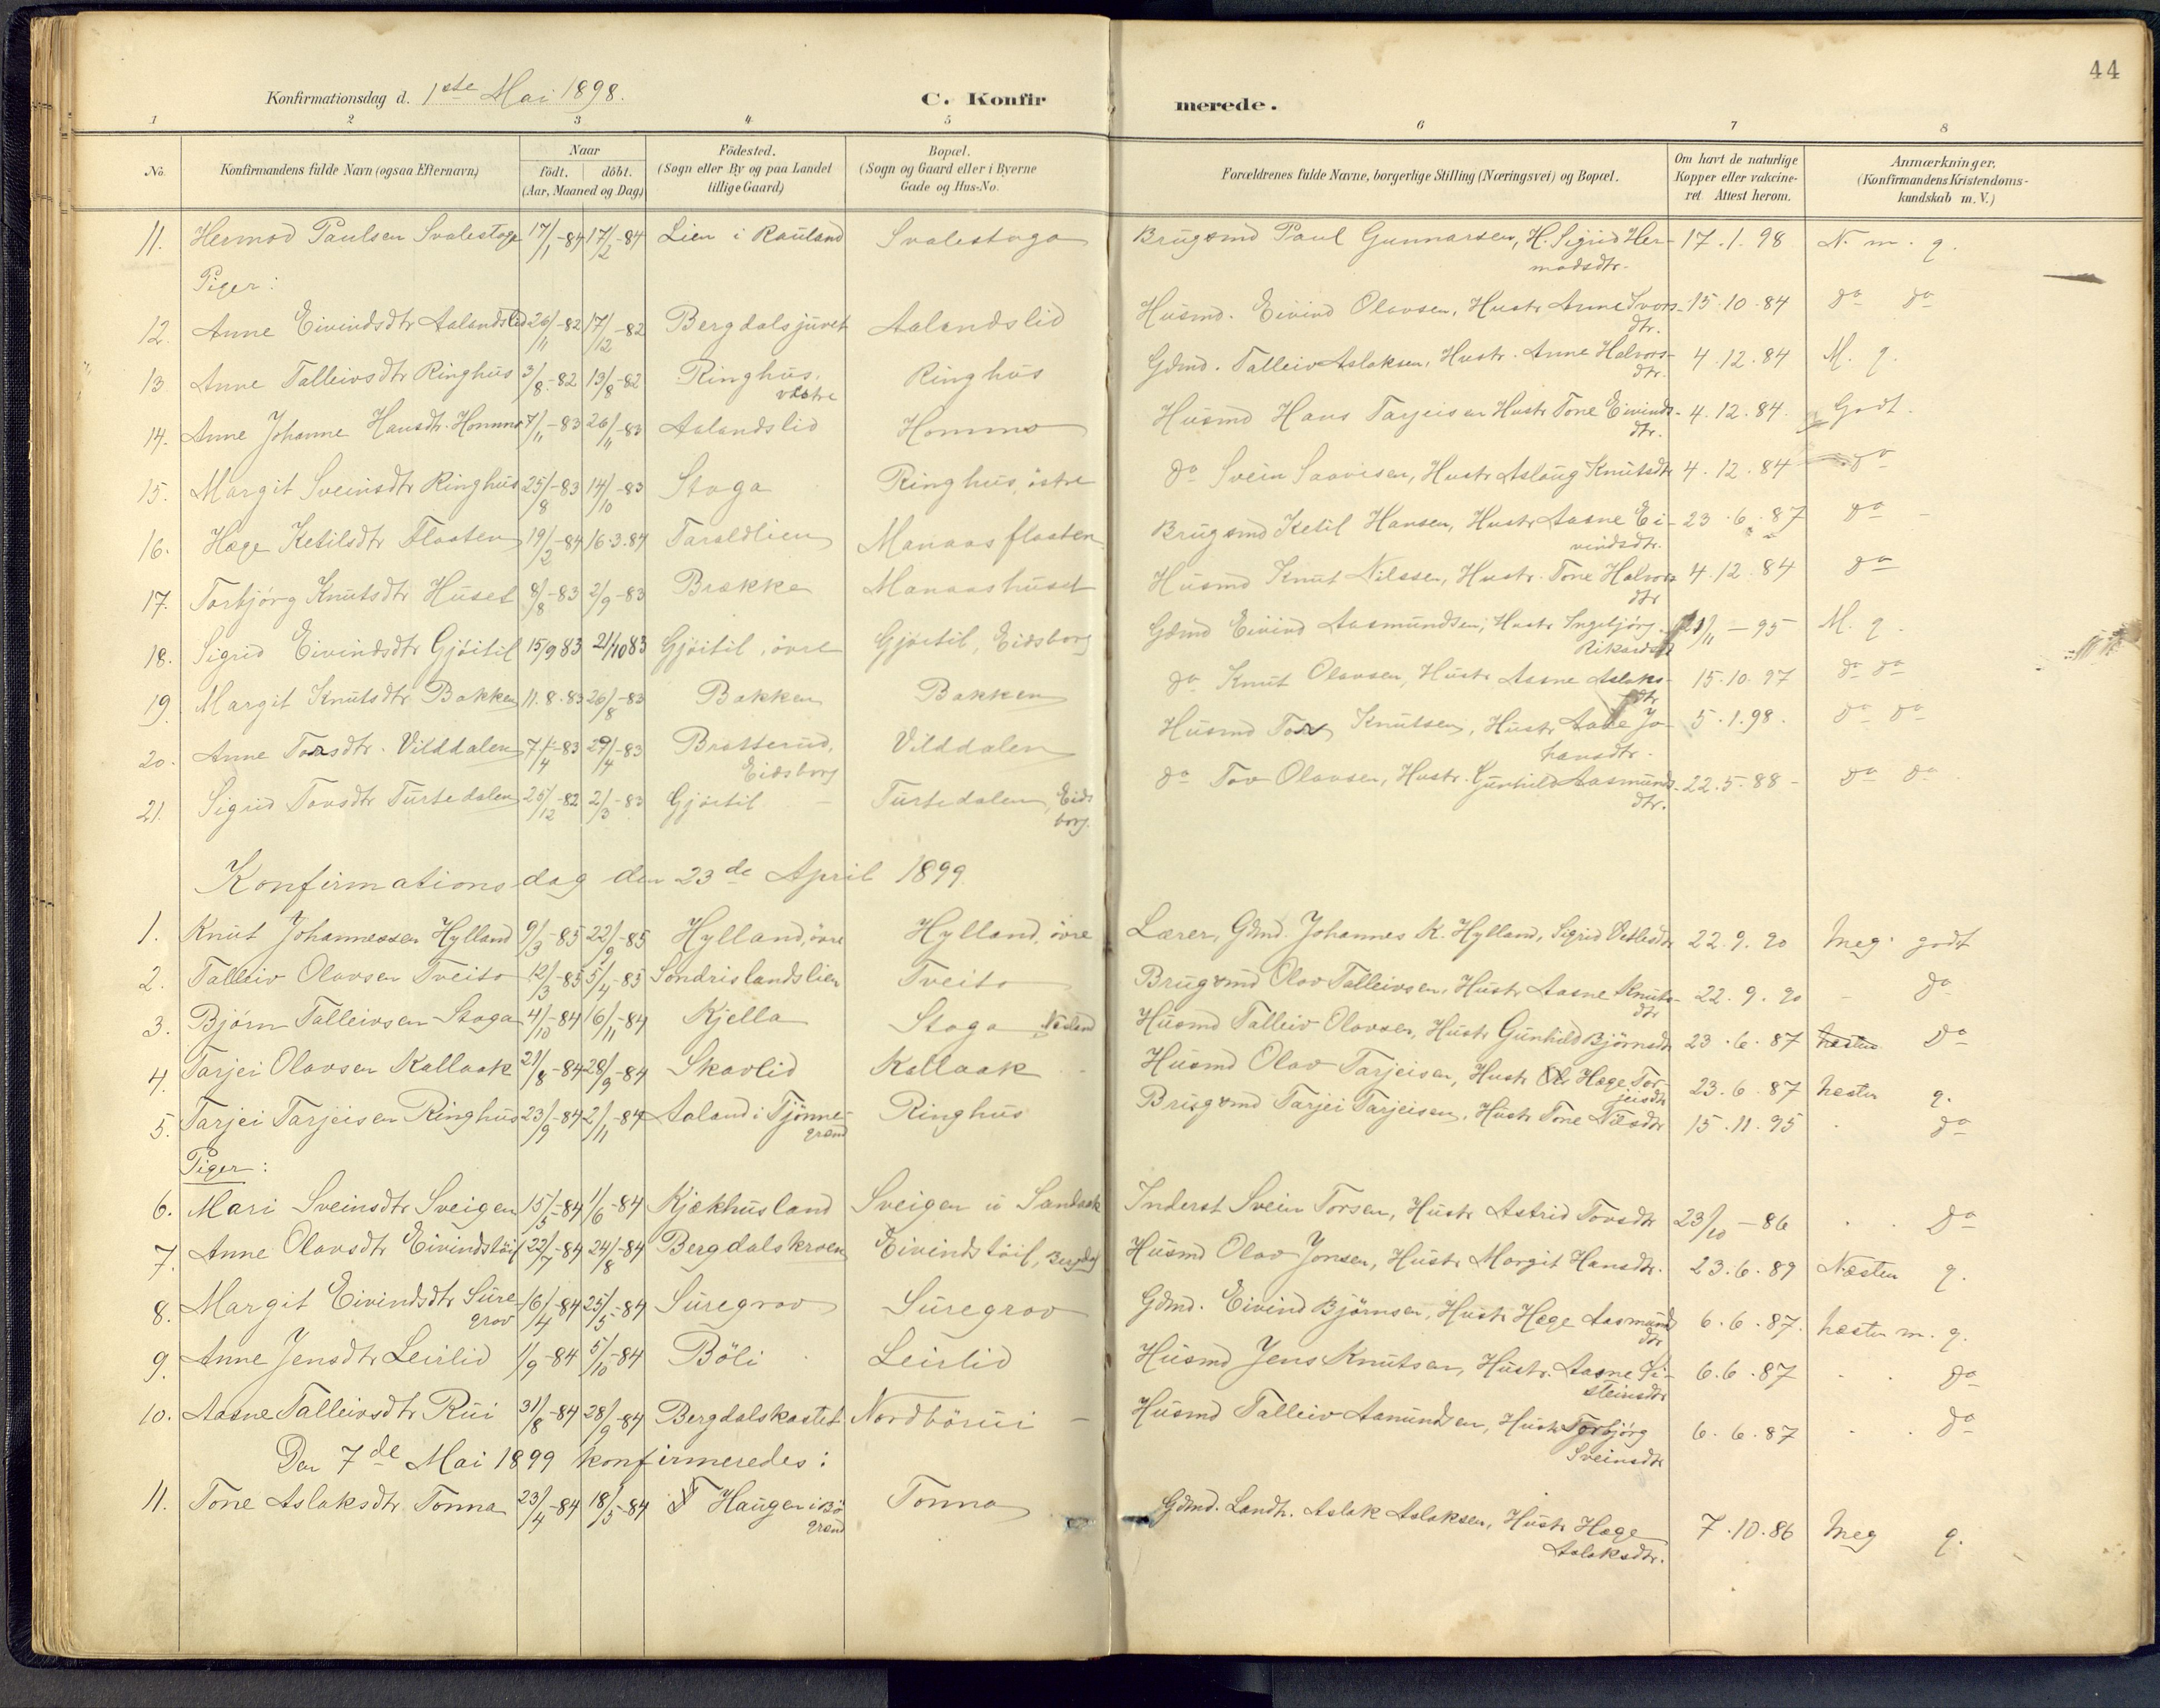 44
Konfirmationsdag d. 1ste Mai 1898. C. Konfirmerede.
1 2 3 4 5 6 7 8
No. Konfirmandens fulde Navn (ogsaa Efternavn) Naar födt. döbt. (Aar, Maaned og Dag) Födested. (Sogn eller By og paa Landet tillige Gaard) Bopæl. (Sogn og Gaard eller i Byerne Gade og Hus-No. Forældrenes fulde Navne, borgerlige Stilling (Næringsvei) og Bopæl. Om havt de naturlige Kopper eller vakcineret Attest herom. Anmærkninger. (Konfirmandens Kristendomskundskab m. V.)
11. Hermod Paulsen Svalestoga 17/1-84 17/2-84 Lien i Rauland Svalestoga Brugsmd Paul Gunnarsen, H. Sigrid Hermodsdtr. 17.1.98 N. m. g.
Piger:
12. Anne Eivindsdtr Aalandslid 26/11-82 17/12-82 Bergdalsjuvet Aalandslid Husmd. Eivind Olavsen, Hustr Anne Ivarsdtr. 15.10.84 do do
13. Anne Talleivsdtr Ringhus 3/8-82 13/8-82 Ringhus, vestre Ringhus Gdmd. Talleiv Aslaksen, Hustr. Anne Halvorsdtr. 4.12.84 M. g.
14. Anne Johanne Hansdtr. Hommo 7/11-83 26/11-83 Aalandslid Hommo Husmd Hans Tarjeisen Hustr Tone Eivindsdtr. 4.12.84. Godt.
15. Margit Sveinsdtr Ringhus 25/8-83 14/10-83 Stoga Ringhus, östre do Svein Saavisen, Hustr Aslaug Knutsdtr 4.12.84 do
16. Hæge Ketilsdtr Flaaten 19/2-84 16.3.84 Taraldlien Manaasflaaten Brugsmd Ketil Hansen, Hustr Aasne Eivindsdtr. 23.6.87 do
17. Torbjörg Knutsdtr Huset 9/8-83 2/9-83 Brække Manaashuset Husmd Knut Nilssen, Hustr. Tone Halvorsdtr 4.12.84 do
18. Sigrid Eivindsdtr Gjöitil 15/9 83 21/10 83 Gjöitil, övre Gjöitil, Eidsborg Gdmd Eivind Aasmundsen, Hustr Ingebjörg Rikardsd 21/11-95 M. g.
19. Margit Knutsdtr Bakken 11.8.83 26/8-83 Bakken Bakken do Knut Olavsen, Hustr Aasne Aslaksdtr 15.10.97 do do
20. Anne Torsdtr. Vilddalen 7/4-83 29/4-83 Bratterud, Eidsborg Vilddalen Husmd Tor Knutsen, Hustr Aase Johansdtr. 5.1.98. do do
21. Sigrid Tovsdtr Turtedalen 25/12-82 2/3-83 Gjöitil Turtedalen, Eidsborg. do Tov Olavsen, Hustr. Gunhild Aasmundsdtr. 22.5.88 do do
Konfirmationsdag den 23de April 1899.
1. Knut Johannessen Hylland 9/3-85 22/9-85 Hylland, övre Hylland, övre Lærer, Gdmd. Johannes K. Hylland, Sigrid Vetlesdtr 22.9.90 Meg. godt
2. Talleiv Olavsen Tveito 12/3-85 5/4-85 Sondrislandslien Tveito Brugsmd Olav Talleivsen, Hustr Aasne Knutsdtr 22.9.90 - do
3. Björn Talleivsen Stoga 4/10-84 16/11-84 Kjella Stoga Husmd Talleiv Olavsen, Hustr Gunhild Björnsdtr 23.6.87 næsten do
4. Tarjei Olavsen Kallaak 21/8-84 28/9-84 Skavlid Kallaak Husmd Olav Tarjeisen, Hustr Hæge Torjeisdtr 23.6.87 næsten g.
5. Tarjei Tarjeisen Ringhus 23/9-84 2/11-84 Aaland i Tjönnegrend Ringhus Brugsmd Tarjei Tarjeisen, Hustr Tone Nilsdtr 15.11.95 do
Piger:
6. Mari Sveinsdtr Sveigen 15/5-84 1/6-84 Kjækhusland Sveigen u Sandaak Inderst Svein Torsen, Hustr Astrid Tovsdtr 23/10-86 do
7. Anne Olavsdtr Eivindstöil 22/7-84 24/8-84 Bergdalskroen Eivindstöil, Bergdal Husmd Olav Jonsen, Hustr Margit Hansdtr. 23.6.89 Næsten g.
8. Margit Eivindsdtr Suregrov 16/4-84 25/5-84 Suregrov Suregrov Gdmd. Eivind Björnsen, Hustr Hæge Aasmundsdtr 6.6.87. næsten m. g.
9. Anne Jensdtr Leirlid 1/9-84 5/10-84 Böli Leirlid Husmd Jens Knutsen, Hustr. Aasne Listeinsdtr 6.6.87 do
10. Aasne Talleivsdtr Rui 31/8-84 28/9-84 Bergdalskastet Nordbörui Husmd Talleiv Aamundsen, Hustr Torbjörg Sveinsdtr 6.6.87 do
Den 7de Mai 1899 konfirmeredes:
11. Tone Aslaksdtr. Tonna 23/4-84 18/5-84 Haugen i Bö grend Tonna Gdmd. Landh. Aslak Aslaksen, Hustr Hæge Aslaksdtr. 7.10.86 Meg g.